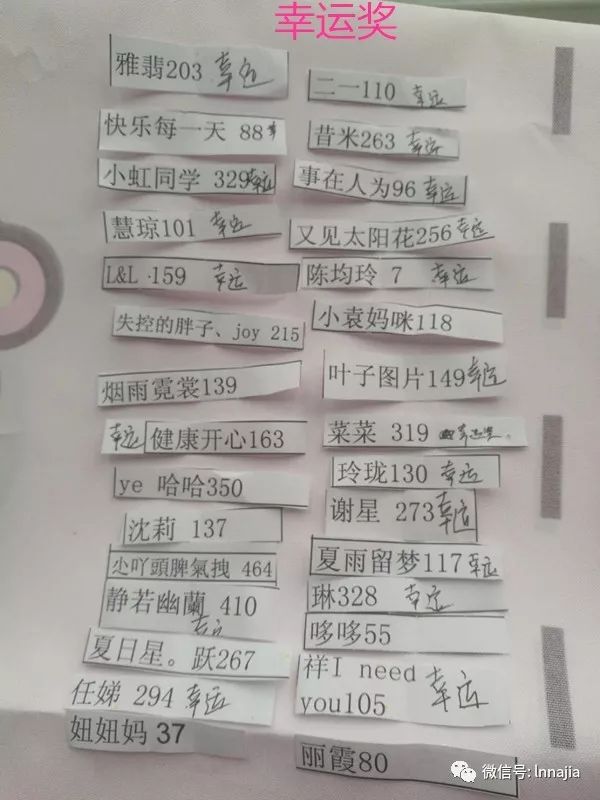 幸运奖
雅翡203 幸运
二一110 幸运
快乐每一天 88幸
昔米263 幸运
小虹同学 329幸运
事在人为96 幸运
慧琼101 幸运
又见太阳花256幸运
L&L ·159 幸运
陈均玲 7 幸运
失控的胖子、joy 215
小袁妈咪118
烟雨霓裳139
叶子图片149幸运
幸运 健康开心163
菜菜 319 幸运奖
ye 哈哈350
玲珑130 幸运
沈莉 137
谢星 273幸运
尐吖頭脾氣拽 464
夏雨留梦117幸运
静若幽蘭 410
幸运
琳328 幸运
哆哆55
夏日星。跃267
祥I need
you105 幸运
任娣 294 幸运
妞妞妈 37
丽霞80
微信号: lnnajia